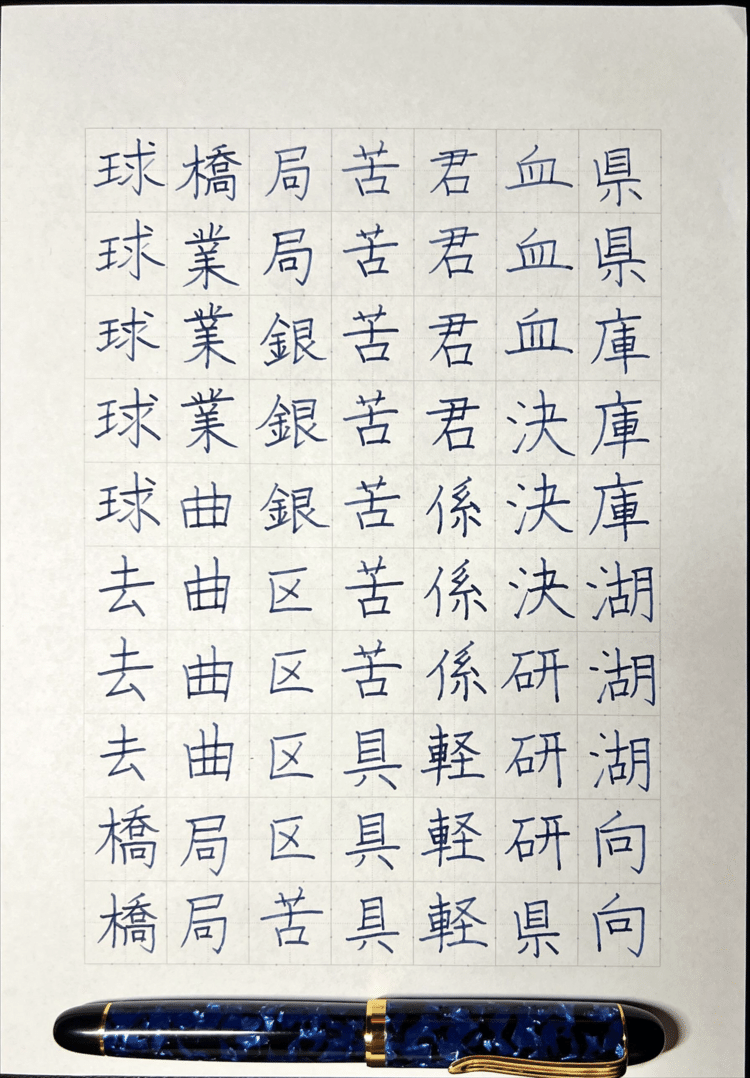 球球球球球去去去橋橋
橋業業業曲曲曲曲局局
局局銀銀銀区区区区苦
苦苦苦苦苦苦苦具具具
君君君君係係係軽軽軽
血血血決決決研研研県
県県庫庫庫湖湖湖向向